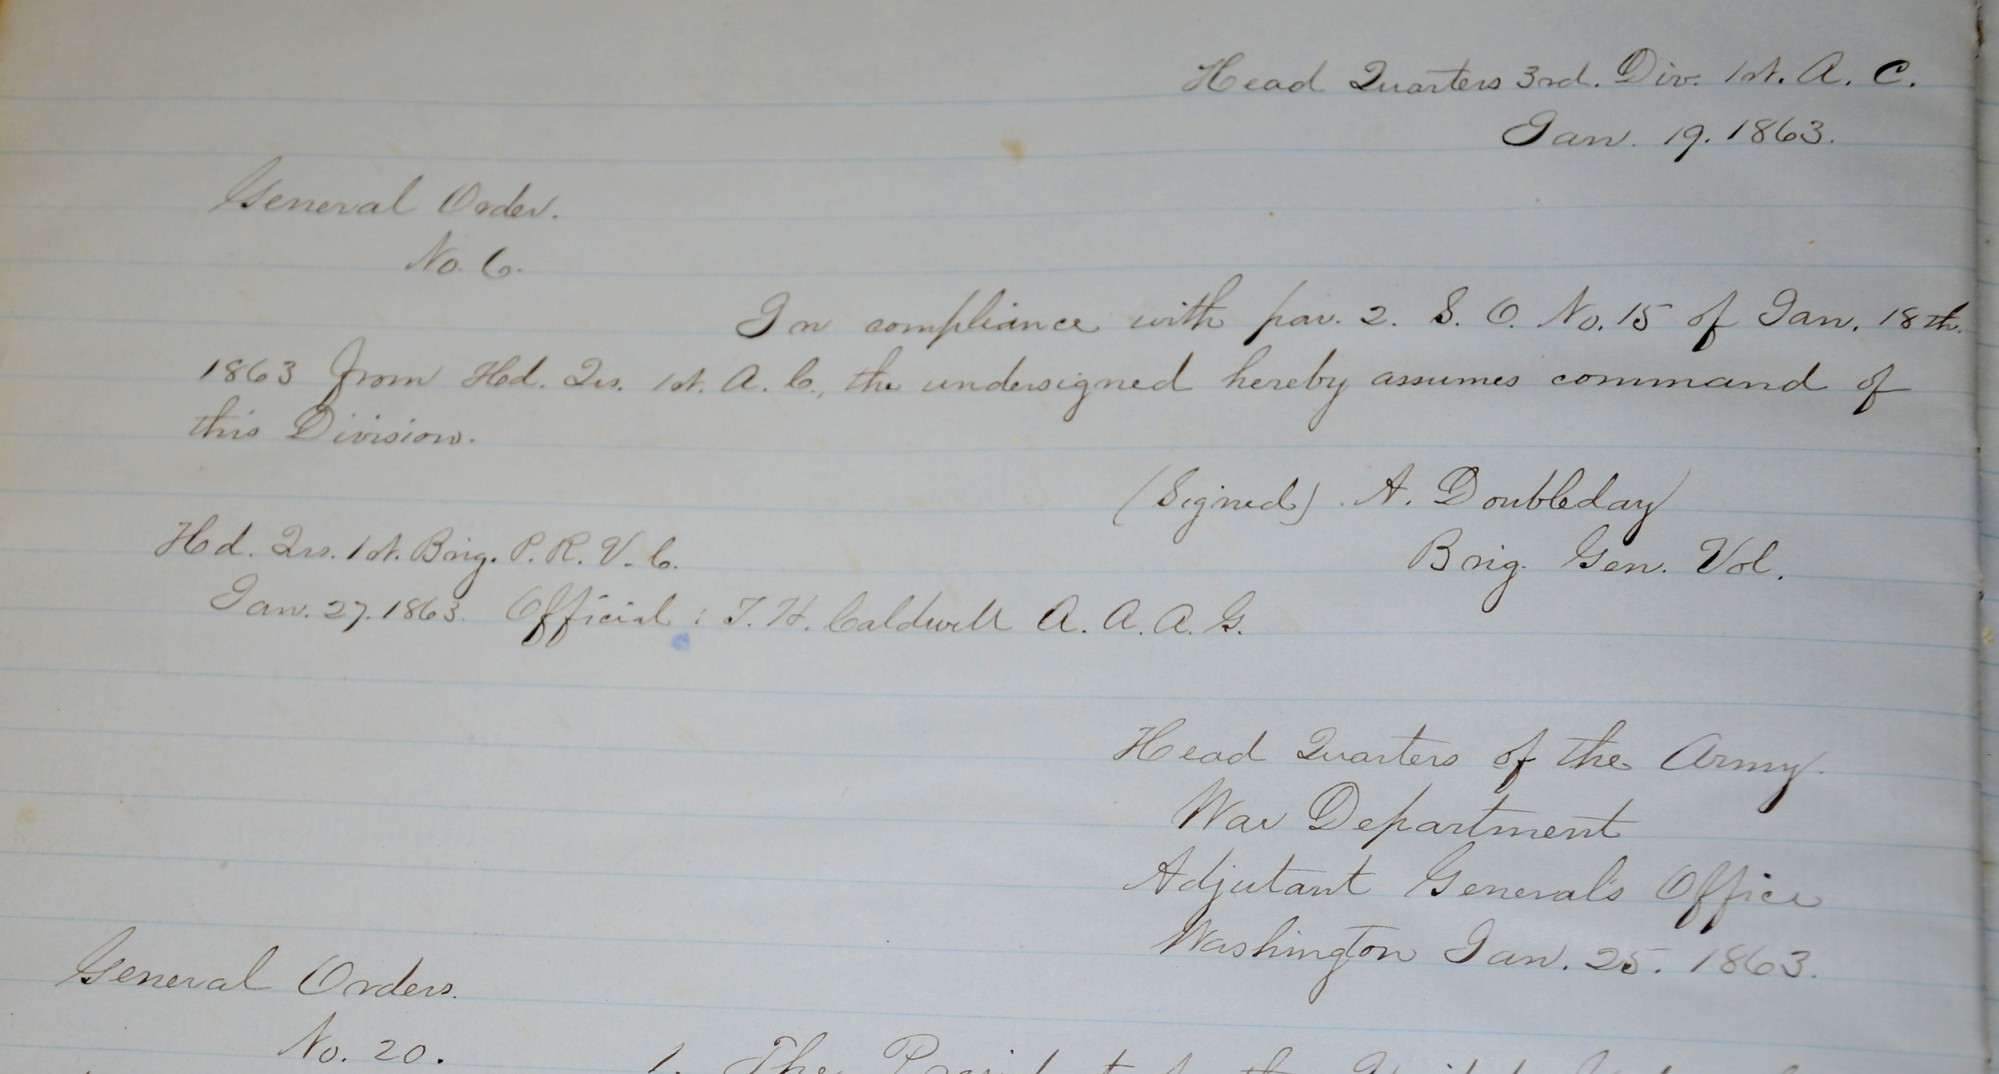 Head Quarters 3rd. Div. 1st. A. C.
Jan. 19. 1863.
General Order.
No. 6.
In compliance with par. 2. S. O. No. 15 of Jan. 18th.
1863 from Hd. Qrs. 1st. A. C., the undersigned hereby assumes command of
this Division.
(Signed) A. Doubleday
Brig. Gen. Vol.
Hd. Qrs. 1st. Brig. P. R. V. C.
Jan. 27. 1863. Official : T. H. Caldwell A. A. A. G.
Head Quarters of the Army.
War Department
Adjutant General's Office
Washington Jan. 25. 1863.
General Orders.
No. 20.
1. The President of the United